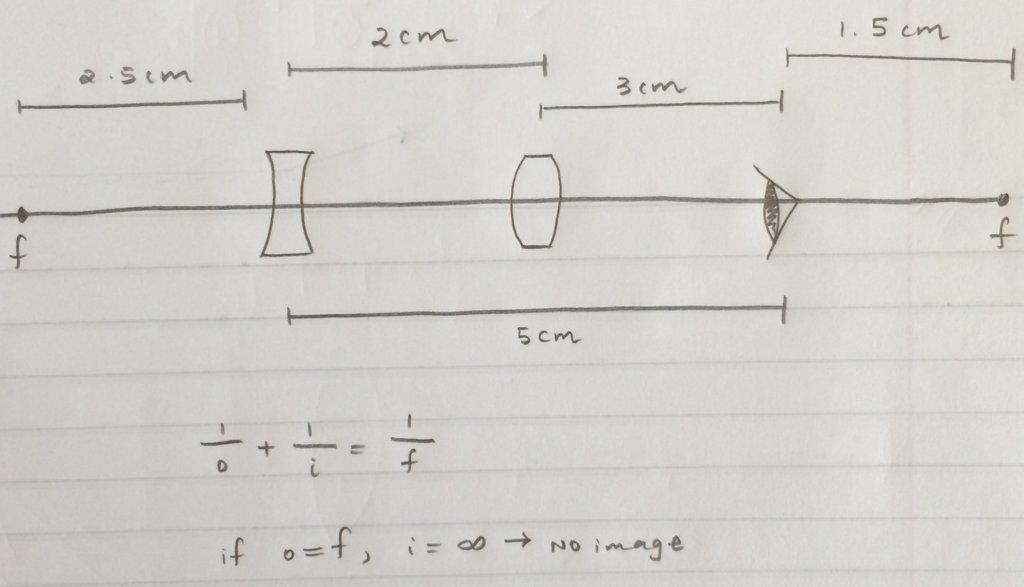 2cm
1.5 cm
2.5cm
3cm
f
f
5cm
1/o + 1/i = 1/f
if o=f, i = ∞ → No image